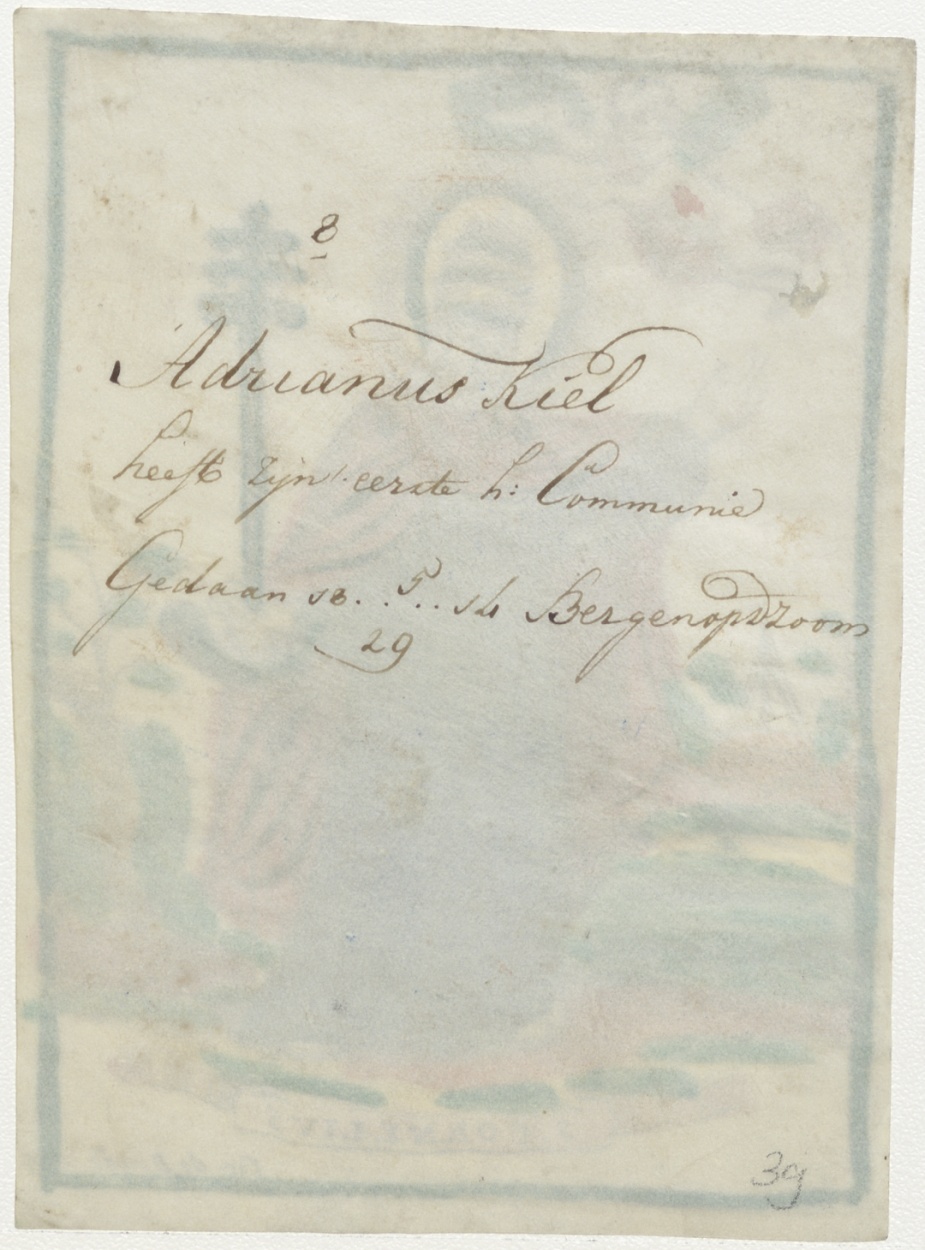 8
Adrianus Kiel
heeft zijn eerste h: Communie
Gedaan 18 . . 5 . . 14 Bergenopdzoom
29
39